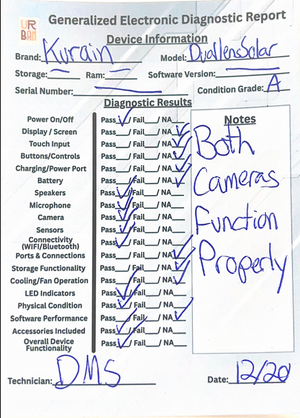 UR
BAN
Generalized Electronic Diagnostic Report
Device Information
Brand: Kurain Model: DuallensSolar
Storage: Ram: Software Version:
Serial Number: Condition Grade: A
Diagnostic Results
Power On/Off Pass ✓/ Fail / NA
Display / Screen Pass / Fail / NA ✓
Touch Input Pass / Fail / NA ✓
Buttons/Controls Pass / Fail / NA ✓
Charging/Power Port Pass / Fail / NA ✓
Battery Pass / Fail / NA ✓
Speakers Pass ✓/ Fail / NA
Microphone Pass ✓/ Fail / NA
Camera Pass ✓/ Fail / NA
Sensors Pass ✓/ Fail / NA
Connectivity
(WIFI/Bluetooth) Pass ✓/ Fail / NA
Ports & Connections Pass / Fail / NA ✓
Storage Functionality Pass / Fail / NA ✓
Cooling/Fan Operation Pass / Fail / NA ✓
LED Indicators Pass ✓/ Fail / NA
Physical Condition Pass ✓/ Fail / NA
Software Performance Pass / Fail / NA ✓
Accessories Included Pass ✓/ Fail / NA
Overall Device
Functionality Pass ✓/ Fail / NA
Notes
Both
Cameras
Function
Properly
Technician: DMS Date: 12/20